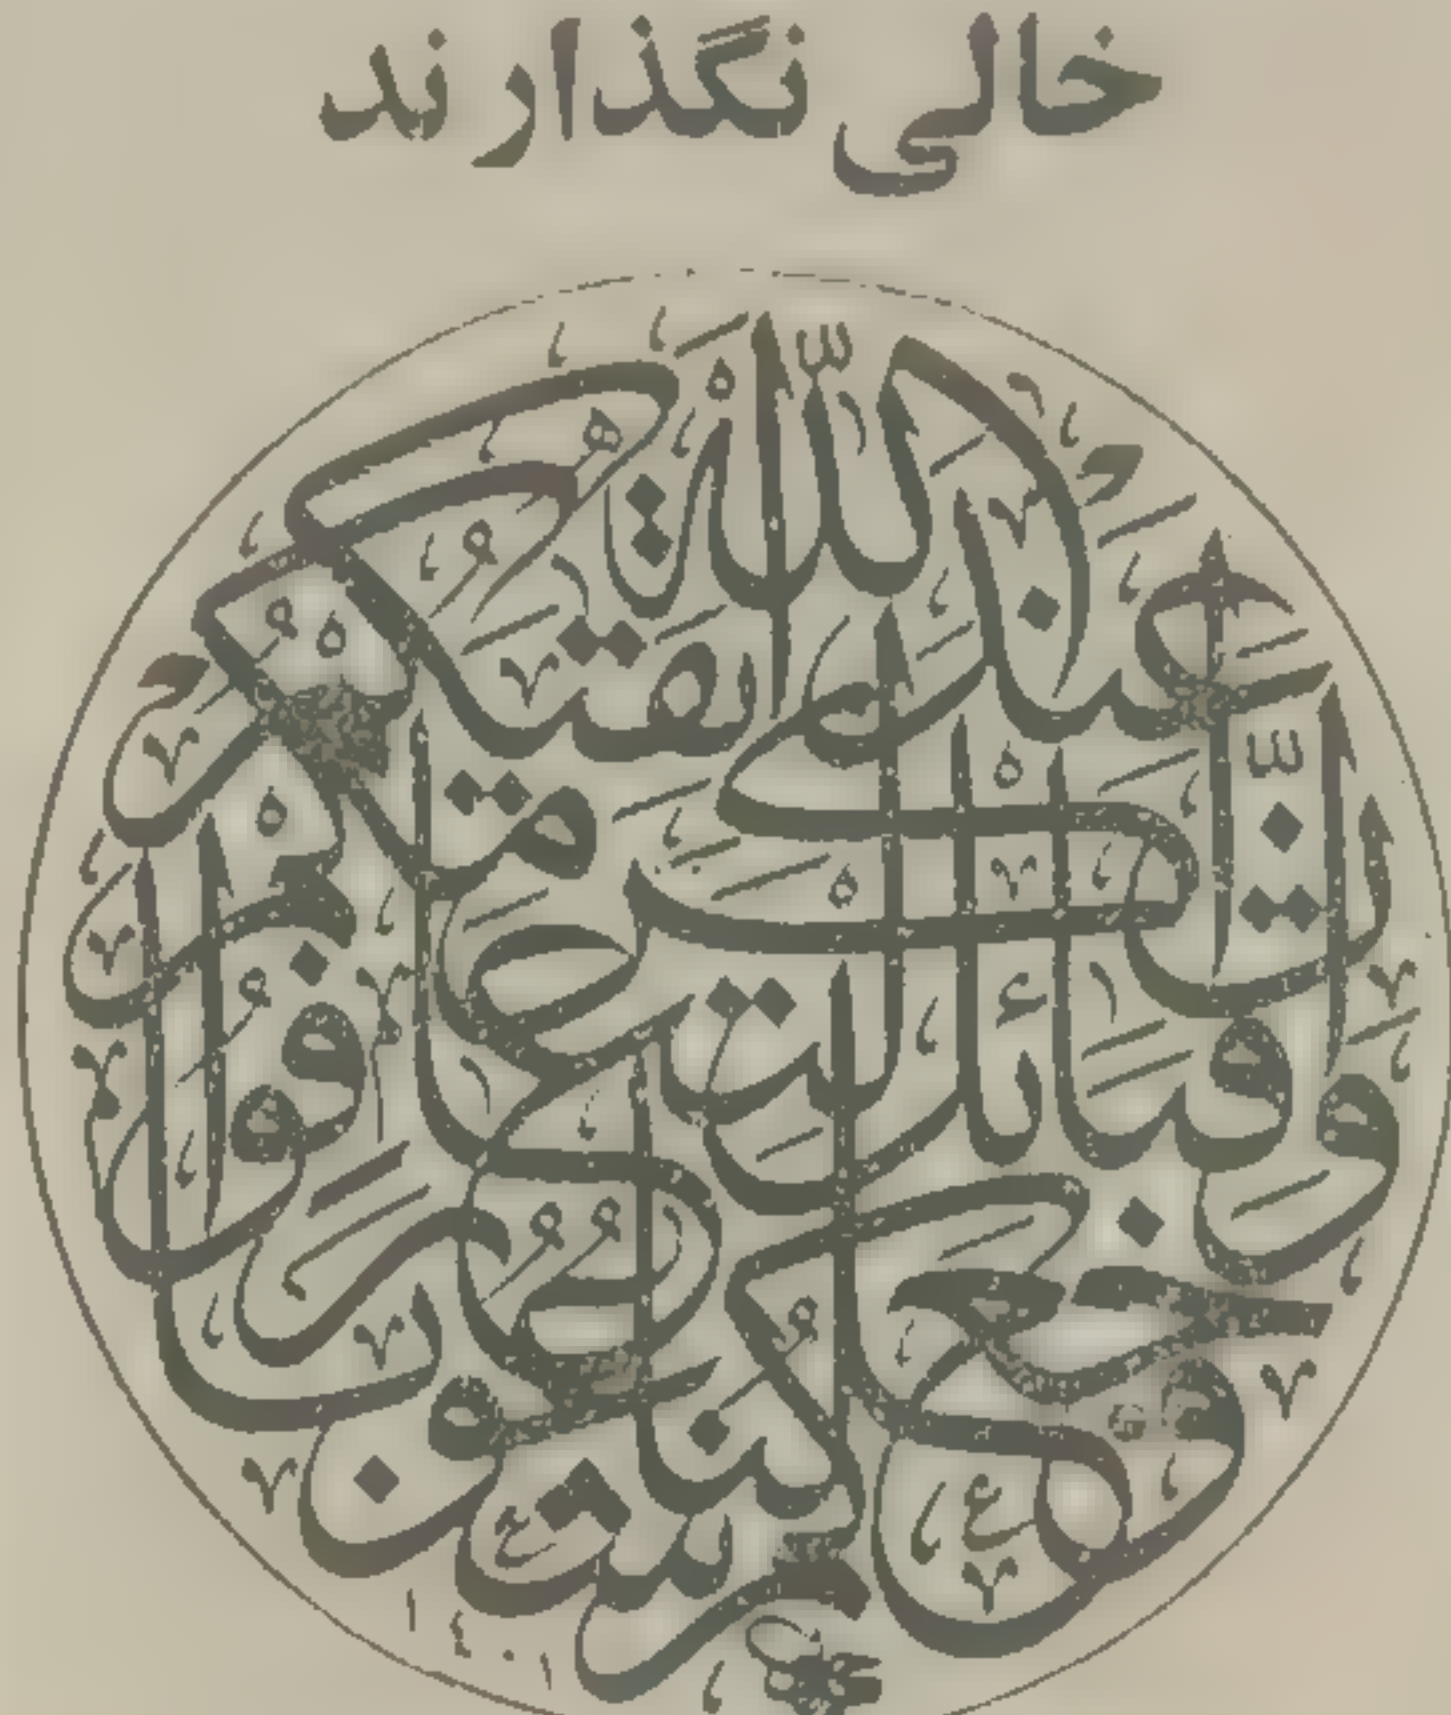 خالی نگذارند
وَجَعَلْنَاكُمْ شُعُوبًا
وَقَبَائِلَ لِتَعَارَفُوا
إِنَّ أَكْرَمَكُمْ
عِنْدَ اللَّهِ أَتْقَاكُمْ
١٤٠١